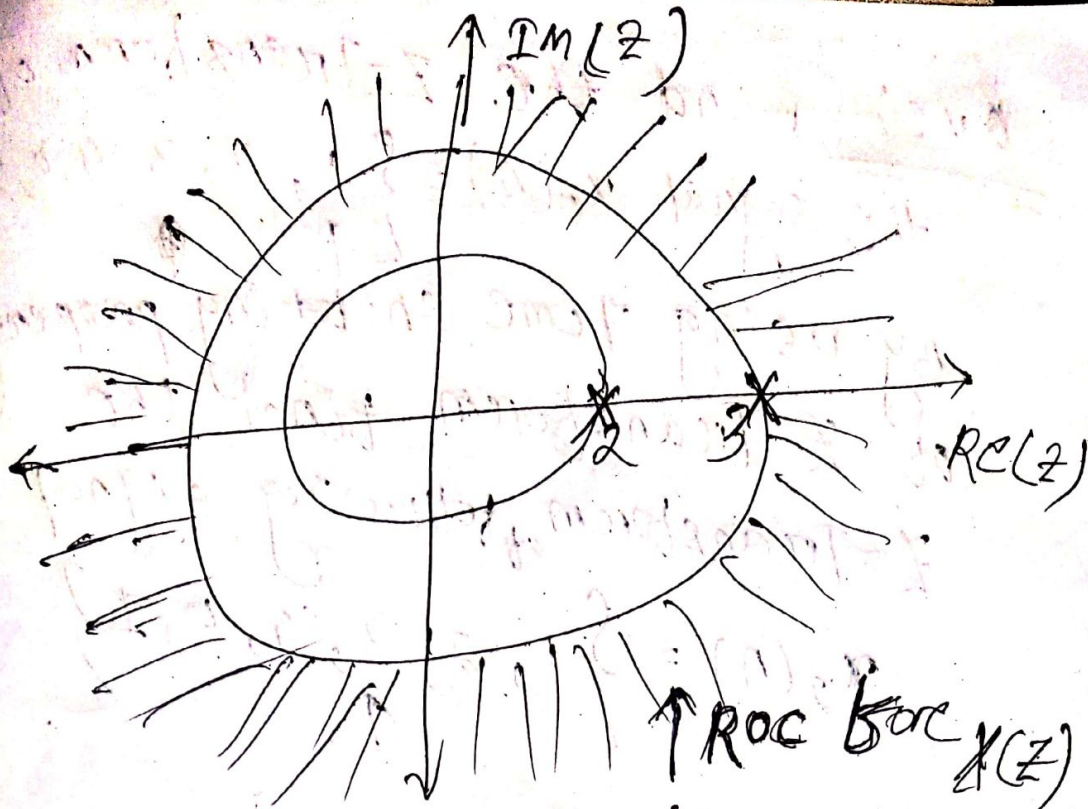 IM(Z)
2 3
RE(Z)
ROC for X(Z)